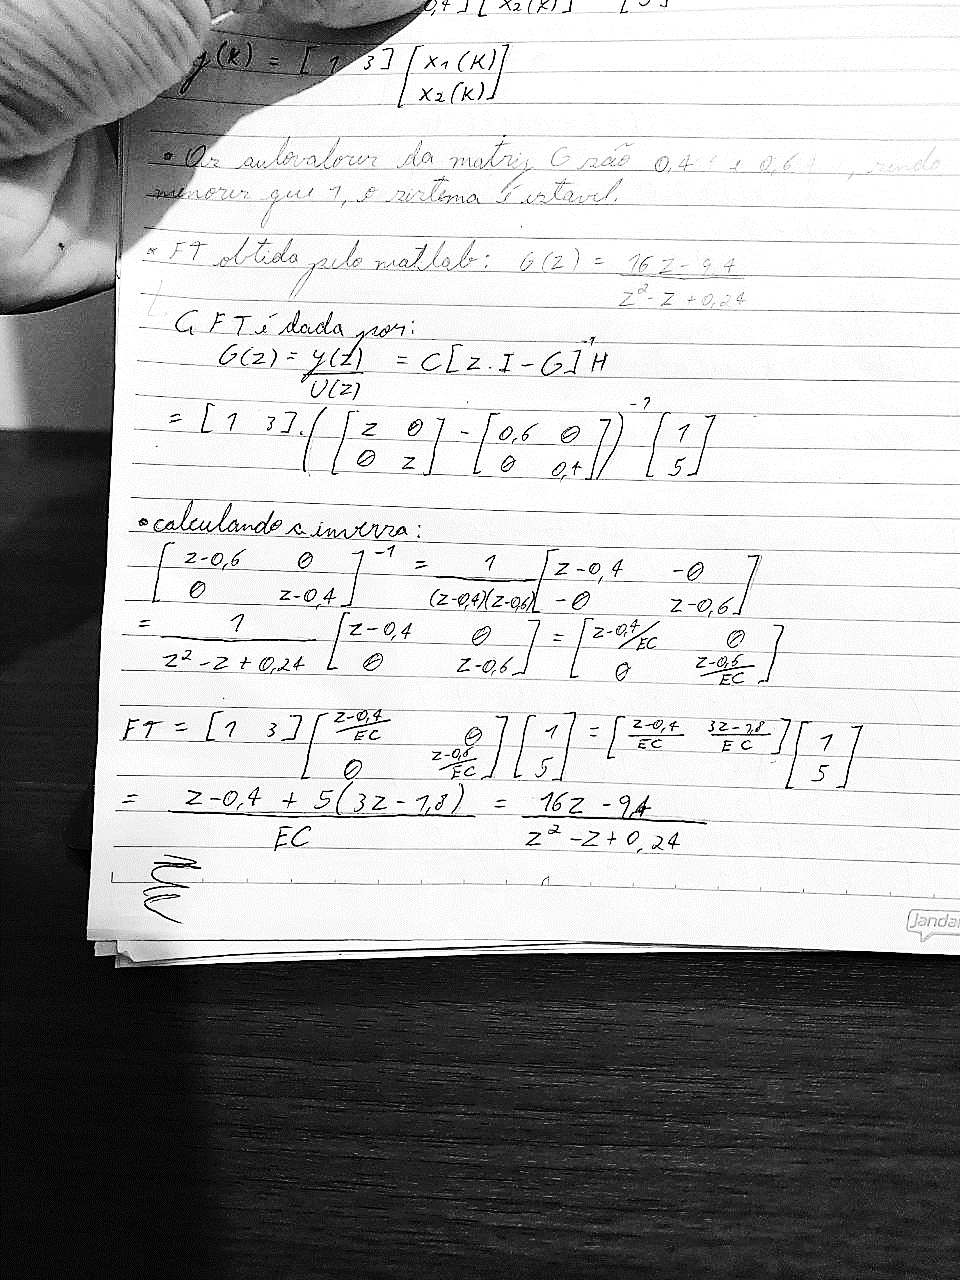 0,4] [x2(k)] [5]
y(k) = [1 3] [x1(k)
x2(k)]
• Os autovalores da matriz G são 0,4 e 0,6, sendo
menores que 1, o sistema é estavel.
* FT obtida pelo matlab: G(z) = 16z-9,4
z²-z+0,24
A FT é dada por:
G(z) = y(z) = C[z.I-G]⁻¹H
U(z)
= [1 3].([z 0 - [0,6 0])⁻¹ [1
0 z] 0 0,4] 5]
• calculando a inversa:
[z-0,6 0]⁻¹ = 1 [z-0,4 -0]
0 z-0,4 (z-0,4)(z-0,6) -0 z-0,6
= 1 [z-0,4 0] = [z-0,4/EC 0]
z²-z+0,24 0 z-0,6 0 z-0,6/EC
FT = [1 3] [z-0,4/EC 0] [1 = [z-0,4/EC 3z-1,8/EC] [1
0 z-0,6/EC 5] 5]
= z-0,4 + 5(3z-1,8) = 16z-9,4
EC z²-z+0,24
Jandai